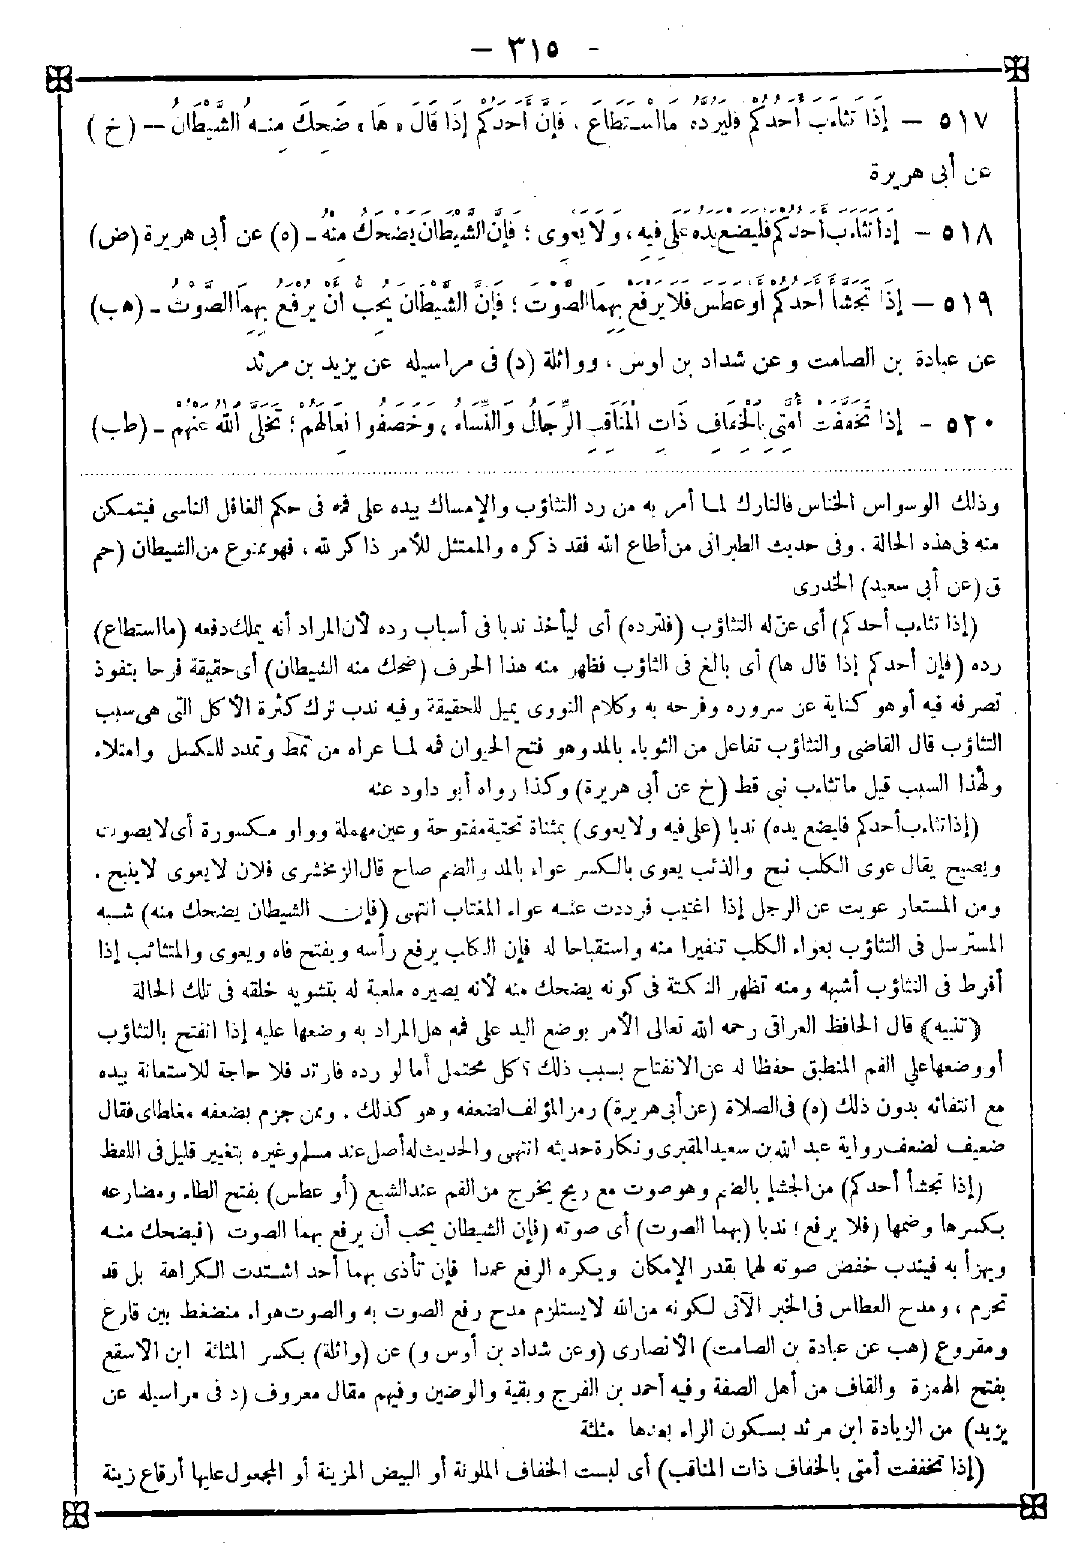 - ٣١٥ -
٥١٧ - إِذَا تَثَاءَبَ أَحَدُكُمْ فَلْيَرُدَّهُ مَا اسْتَطَاعَ ، فَإِنَّ أَحَدَكُمْ إِذَا قَالَ « هَا » ضَحِكَ مِنْهُ الشَّيْطَانُ - (خ)
عن أبى هريرة
٥١٨ - إِذَا تَثَاءَبَ أَحَدُكُمْ فَلْيَضَعْ يَدَهُ عَلَى فِيهِ ، وَلَا يَعْوِى ؛ فَإِنَّ الشَّيْطَانَ يَضْحَكُ مِنْهُ - (ه) عن أبى هريرة (ض)
٥١٩ - إِذَا تَجَشَّأَ أَحَدُكُمْ أَوْ عَطَسَ فَلَا يَرْفَعْ بِهِمَا الصَّوْتَ ؛ فَإِنَّ الشَّيْطَانَ يُحِبُّ أَنْ يُرْفَعَ بِهِمَا الصَّوْتُ - (هب)
عن عبادة بن الصامت وعن شداد بن اوس ، وواثلة (د) فى مراسيله عن يزيد بن مرثد
٥٢٠ - إِذَا تَخَفَّفَتْ أُمَّتِى بِالْخِفَافِ ذَاتِ الْمَنَاقِبِ الرِّجَالُ وَالنِّسَاءُ ، وَخَصَفُوا نِعَالَهُمْ ؛ تَخَلَّى اللهُ عَنْهُمْ - (طب)
وذلك الوسواس الخناس فالتارك لما أمر به من رد التثاؤب والإمساك بيده على فمه فى حكم الغافل الناسى فيتمكن
منه فى هذه الحالة . وفى حديث الطبرانى من أطاع الله فقد ذكره والممتثل للأمر ذاكر لله ، فهو ممنوع من الشيطان (حم
ق (عن أبى سعيد) الخدرى
(إذا تثاءب أحدكم) أى عنّ له التثاؤب (فلترده) أى ليأخذ ندبا فى أسباب رده لأن المراد أنه يملك دفعه (ما استطاع)
رده (فإن أحدكم إذا قال ها) أى بالغ فى التاؤب فظهر منه هذا الحرف (ضحك منه الشيطان) أى حقيقة فرحا بتفوذ
تصرفه فيه أو هو كناية عن سروره وفرحه به وكلام النووى يميل للحقيقة وفيه ندب ترك كثرة الأكل التى هى سبب
التثاؤب قال القاضى والتثاؤب تفاعل من الثوباء بالمد وهو فتح الحيوان فمه لما عراه من تمط وتمدد للكسل وامتلاء
ولهذا السبب قيل ما تثاءب نبى قط (خ عن أبى هريرة) وكذا رواه أبو داود عنه
(إذا تثاءب أحدكم فليضع يده) ندبا (على فيه ولا يعوى) بمثناة تحتية مفتوحة وعين مهملة وواو مكسورة أى لا يصوت
ويصيح يقال عوى الكلب نبح والذئب يعوى بالكسر عواء بالمد والضم صاح قال الزمخشرى فلان لا يعوى لا ينبح .
ومن المستعار عويت عن الرجل إذا اغتيب فرددت عنه عواء المغتاب انتهى (فإن الشيطان يضحك منه) شبه
المسترسل فى التثاؤب بعواء الكلب تنفيرا منه واستقباحا له فإن الكلب يرفع رأسه ويفتح فاه ويعوى والمتثائب إذا
أفرط فى التثاؤب أشبهه ومنه تظهر النكتة فى كونه يضحك منه لأنه يصيره ملعبة له بتشويه خلقه فى تلك الحالة
(تنبيه) قال الحافظ العراقى رحمه الله تعالى الأمر بوضع اليد على فمه هل المراد به وضعها عليه إذا انفتح بالتثاؤب
أو وضعها على الفم المنطبق حفظا له عن الانفتاح بسبب ذلك ؟ كل محتمل أما لو رده فارتد فلا حاجة للاستعانة بيده
مع انتفائه بدون ذلك (ه) فى الصلاة (عن أبى هريرة) رمز المؤلف لضعفه وهو كذلك . وممن جزم بضعفه مغلطاى فقال
ضعيف لضعف رواية عبد الله بن سعيد المقبرى ونكارة حديثه انتهى والحديث له أصل عند مسلم وغيره بتغيير قليل فى اللفظ
(إذا تجشأ أحدكم) من الجشإ بالضم وهو صوت مع ريح يخرج من الفم عند الشبع (أو عطس) بفتح الطاء ومضارعه
بكسرها وضمها (فلا يرفع) ندبا (بهما الصوت) أى صوته (فإن الشيطان يحب أن يرفع بهما الصوت) فيضحك منه
ويهزأ به فيندب خفض صوته لهما بقدر الإمكان ويكره الرفع عمدا فإن تأذى بهما أحد اشتدت الكراهة بل قد
تحرم ، ومدح العطاس فى الخبر الآتى لكونه من الله لا يستلزم مدح رفع الصوت به والصوت هواء منضغط بين قارع
ومقروع (هب عن عبادة بن الصامت) الأنصارى (وعن شداد بن أوس و) عن (واثلة) بكسر المثلثة ابن الاسقع
بفتح الهمزة والقاف من أهل الصفة وفيه أحمد بن الفرج وبقية والوضين وفيهم مقال معروف (د فى مراسيله عن
يزيد) من الزيادة ابن مرثد بسكون الراء بعدها مثلثة
(إذا تخففت أمتى بالخفاف ذات المناقب) أى لبست الخفاف الملونة أو البيض المزينة أو المجعول عليها أرقاع زينة